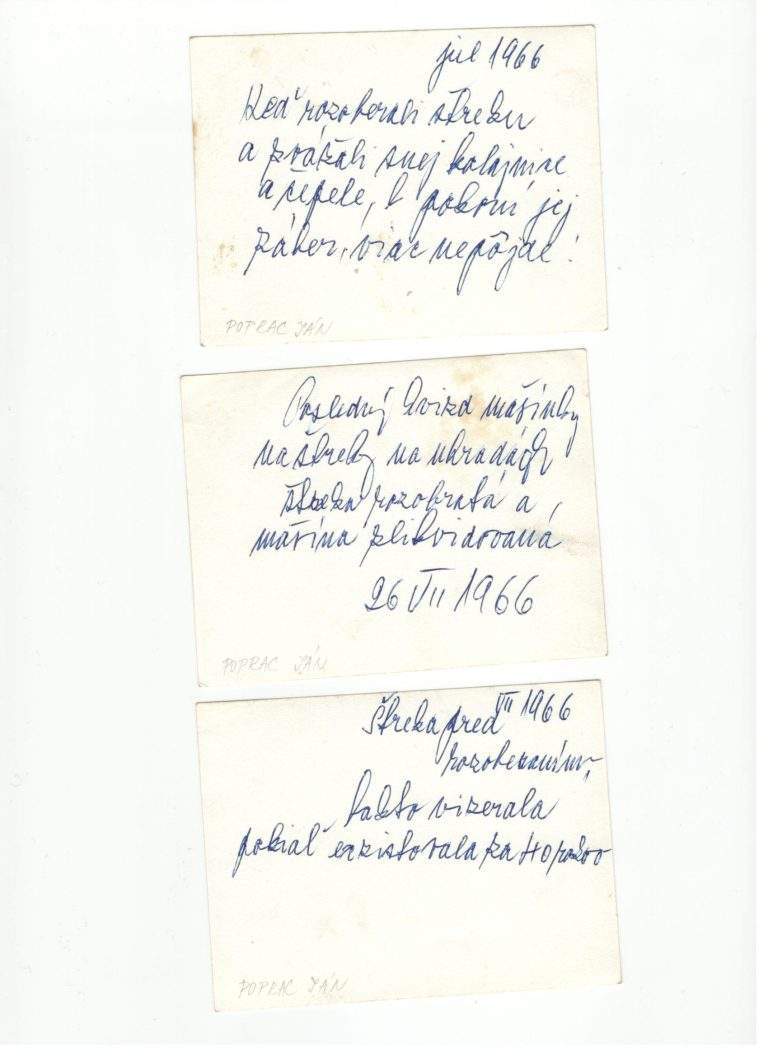 júl 1966
Keď rozoberali štreku
a zvážali snej kolajnice
a čepele, k pokoni jej
záber, viac nepôjde!
POPRAC JÁN
Posledný hvizd mašinky
na štreky na uhradách
štreka rozobratá a
mašina zlikvidovaná
26 VII 1966
POPRAC JÁN
VII 1966
Štreka pred
rozoberaním,
takto vizerala
pokiaľ exzistovala za 40 rokov
POPRAC JÁN